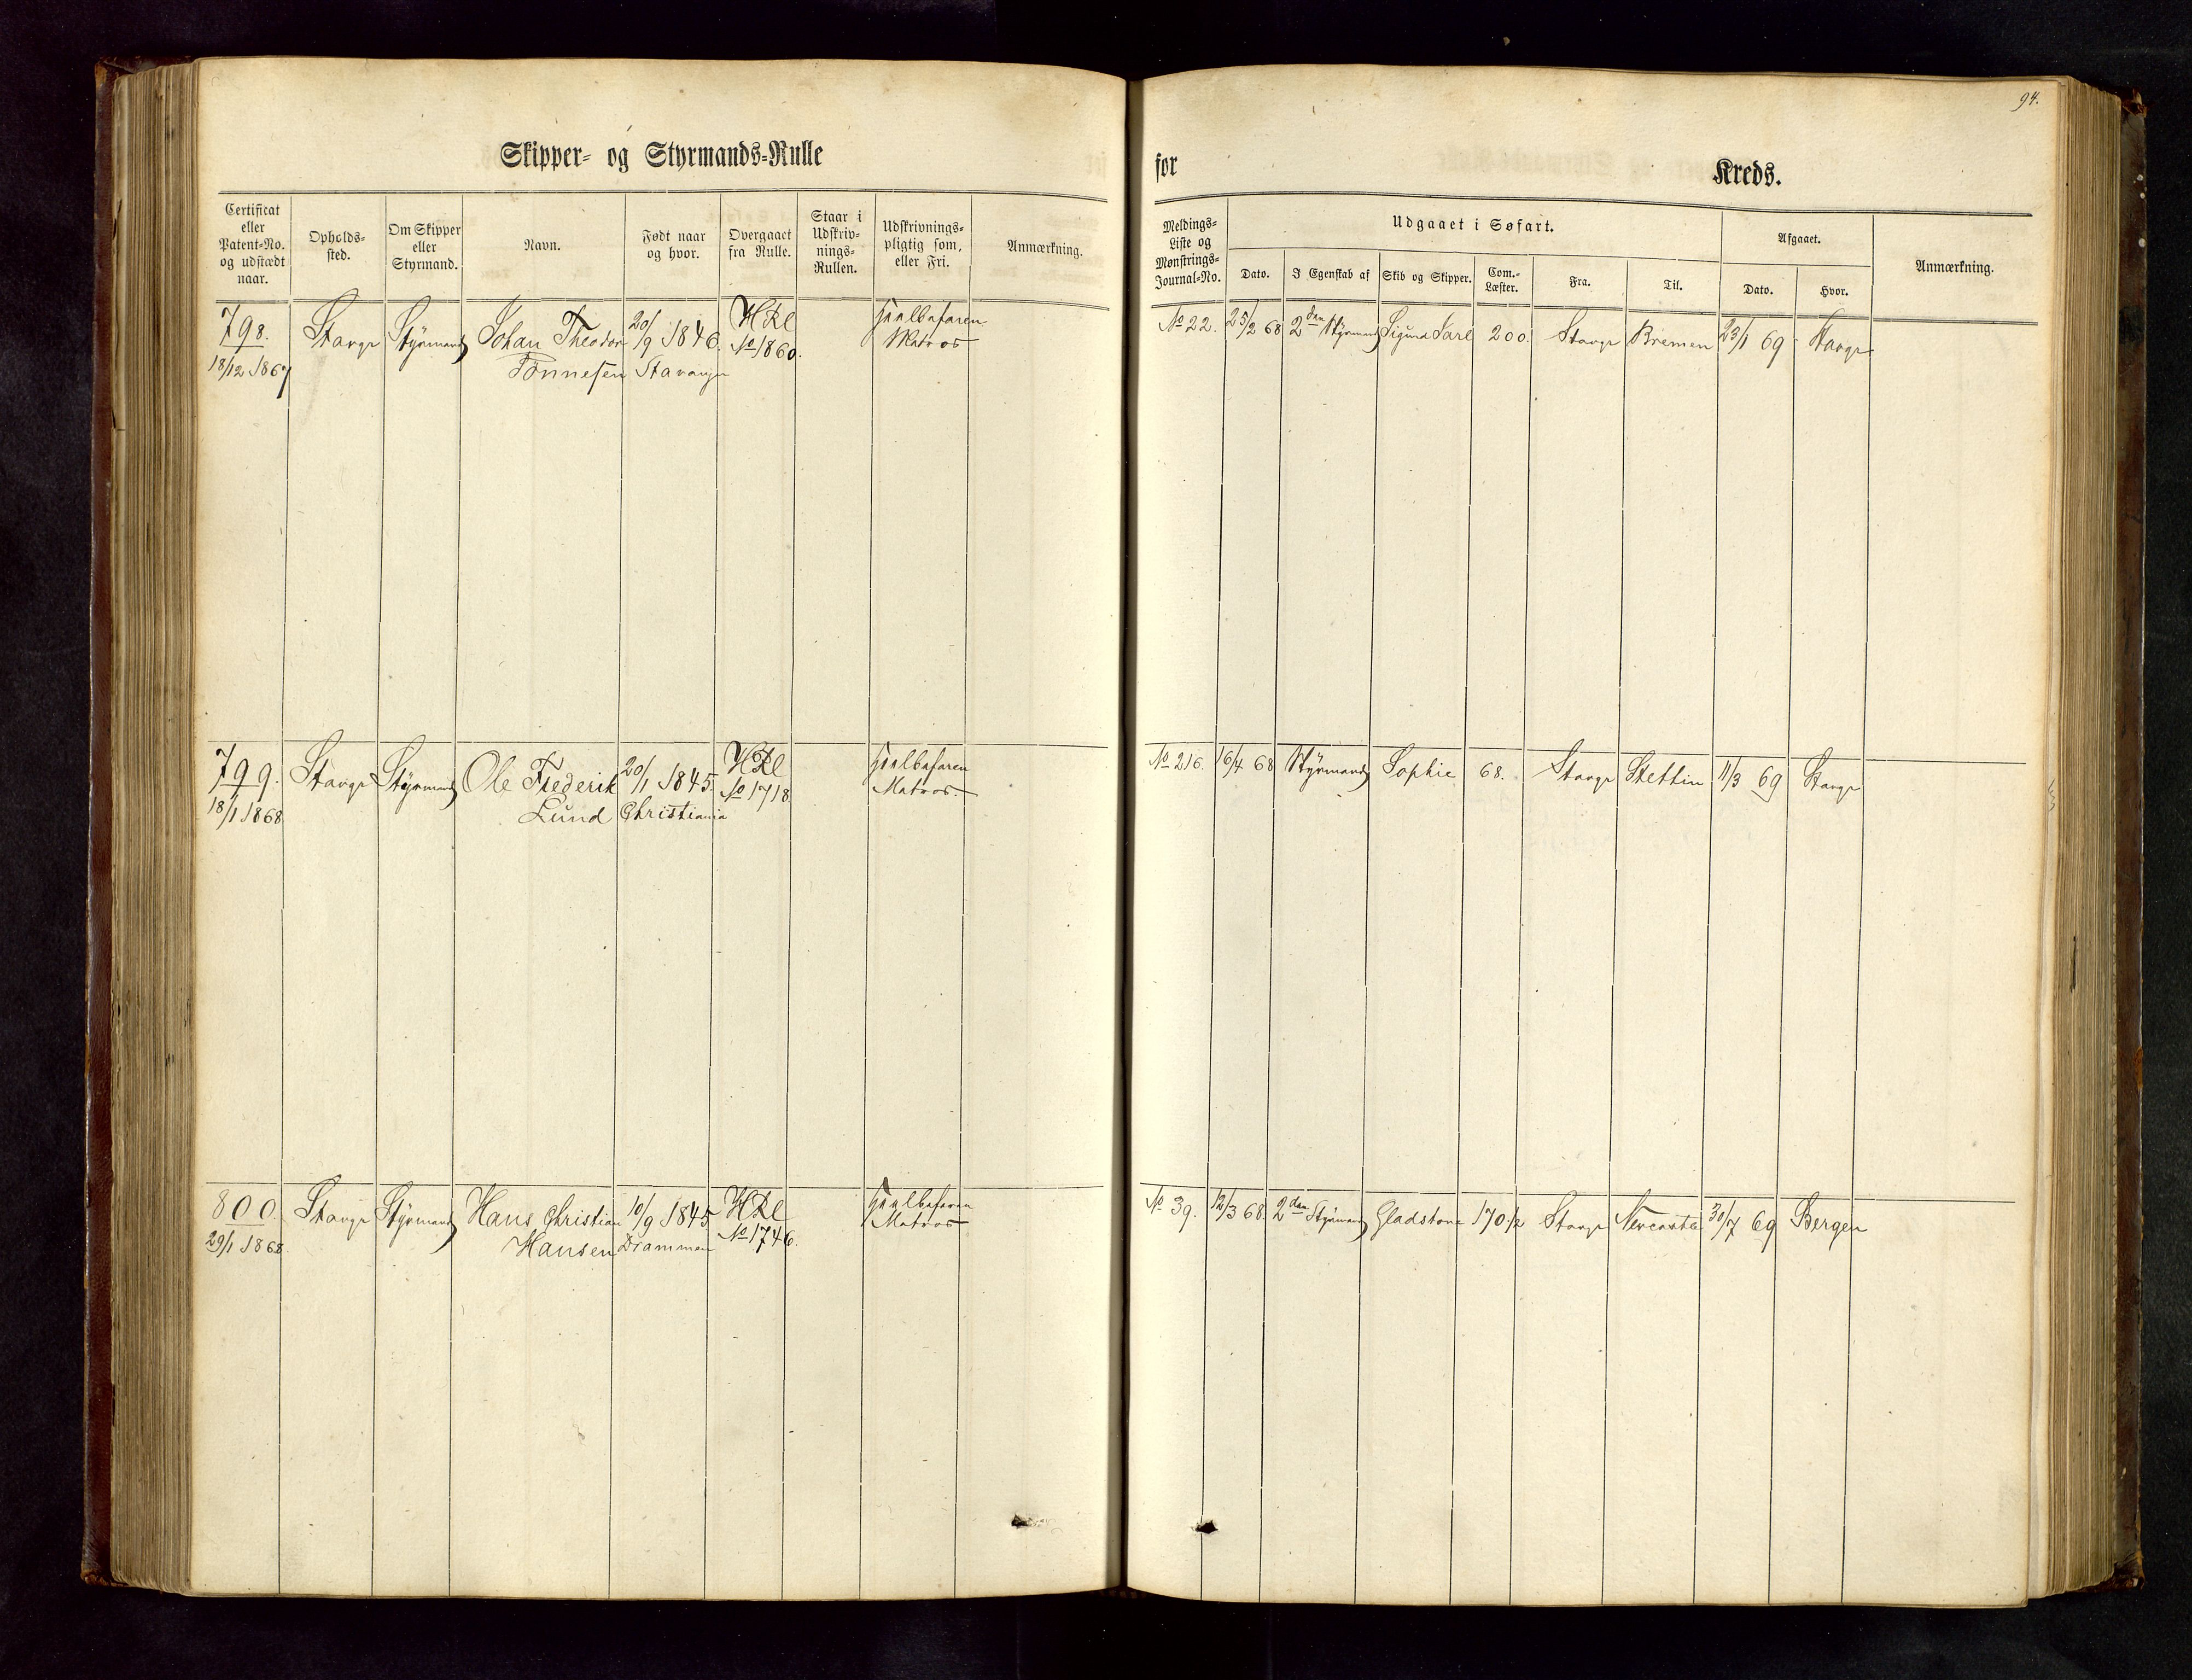 94.
Skipper- og Styrmands-Rulle
for Kreds.
Certificat eller Patent-No. og udstædt naar.
Opholds-sted.
Om Skipper eller Styrmand.
Navn.
Født naar og hvor.
Overgaaet fra Rulle.
Staar i Udskriv-nings-Rullen.
Udskrivnings-pligtig som, eller Fri.
Anmærkning.
Meldings-Liste og Mønstrings-Journal-No.
Udgaaet i Søfart.
Dato.
I Egenskab af
Skib og Skipper.
Com.-Læster.
Fra.
Til.
Afgaaet.
Dato.
Hvor.
Anmærkning.
798. Stavgr Styrmand Johan Theodor 20/9 1846. HRl Hjælbefaren
18/12 1867 Tönnesen Stavanger No 1860. Matros
No 22. 25/2 68 2den Styrmand Sigurd Jarl 200. Stavgr Bremen 23/1 69 Stavgr
799. Stavgr Styrmand Ole Frederik 20/1 1845. HRl
18/1 1868 Lund Christiania No 1718 Matros.
No 216. 16/4 68 Styrmand Sophie 68. Stavgr Stettin 11/3 69 Stavgr
800. Stavgr Styrmand Hans Christian 10/9 1845 HRl
29/1 1868 Hansen Drammen No 1746. Matros
No 39. 12/3 68. 2den Styrmand Gladstone 170 1/2 Stavgr Newcastle 30/7 69 Bergen